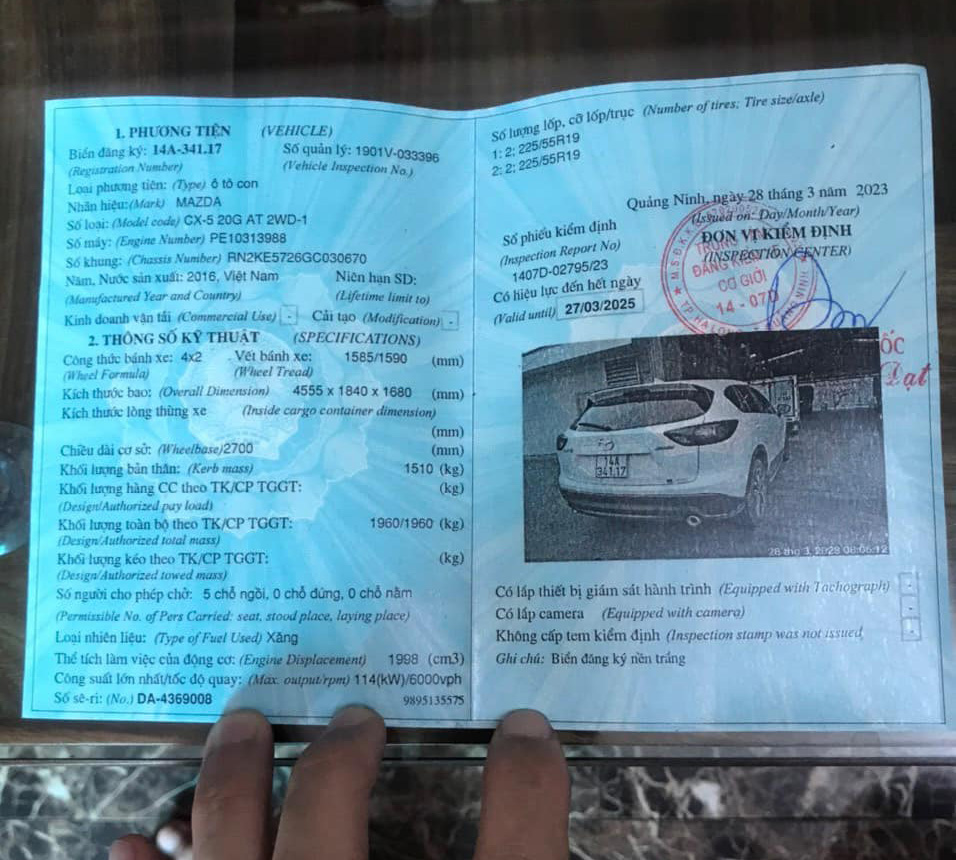 1. PHƯƠNG TIỆN (VEHICLE)
Biển đăng ký: 14A-341.17 Số quản lý: 1901V-033396
(Registration Number) (Vehicle Inspection No.)
Loại phương tiện: (Type) ô tô con
Nhãn hiệu: (Mark) MAZDA
Số loại: (Model code) CX-5 20G AT 2WD-1
Số máy: (Engine Number) PE10313988
Số khung: (Chassis Number) RN2KE5726GC030670
Năm, Nước sản xuất: 2016, Việt Nam Niên hạn SD:
(Manufactured Year and Country) (Lifetime limit to)
Kinh doanh vận tải (Commercial Use) - Cải tạo (Modification) -
2. THÔNG SỐ KỸ THUẬT (SPECIFICATIONS)
Công thức bánh xe: 4x2 Vết bánh xe: 1585/1590 (mm)
(Wheel Formula) (Wheel Tread)
Kích thước bao: (Overall Dimension) 4555 x 1840 x 1680 (mm)
Kích thước lòng thùng xe (Inside cargo container dimension)
(mm)
Chiều dài cơ sở: (Wheelbase)2700 (mm)
Khối lượng bản thân: (Kerb mass) 1510 (kg)
Khối lượng hàng CC theo TK/CP TGGT: (kg)
(Design/Authorized pay load)
Khối lượng toàn bộ theo TK/CP TGGT: 1960/1960 (kg)
(Design/Authorized total mass)
Khối lượng kéo theo TK/CP TGGT: (kg)
(Design/Authorized towed mass)
Số người cho phép chở: 5 chỗ ngồi, 0 chỗ đứng, 0 chỗ nằm
(Permissible No. of Pers Carried: seat, stood place, laying place)
Loại nhiên liệu: (Type of Fuel Used) Xăng
Thể tích làm việc của động cơ: (Engine Displacement) 1998 (cm3)
Công suất lớn nhất/tốc độ quay: (Max. output/rpm) 114(kW)/6000vph
Số sê-ri: (No.) DA-4369008 9895135575
Số lượng lốp, cỡ lốp/trục (Number of tires; Tire size/axle)
1: 2; 225/55R19
2: 2; 225/55R19
Quảng Ninh, ngày 28 tháng 3 năm 2023
(Issued on: Day/Month/Year)
Số phiếu kiểm định
ĐƠN VỊ KIỂM ĐỊNH
(Inspection Report No)
(INSPECTION CENTER)
1407D-02795/23
Có hiệu lực đến hết ngày
(Valid until) 27/03/2025
ĐĂNG KIỂM
CƠ GIỚI
14 - 07D
ỐC
Đạt
14A
341.17
28 thg 3, 2023 08:06:12
Có lắp thiết bị giám sát hành trình (Equipped with Tachograph) -
Có lắp camera (Equipped with camera) -
Không cấp tem kiểm định (Inspection stamp was not issued -
Ghi chú: Biển đăng ký nền trắng